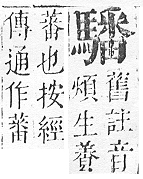 𩦏
舊註音
煩生養
蕃也按經
傳通作蕃